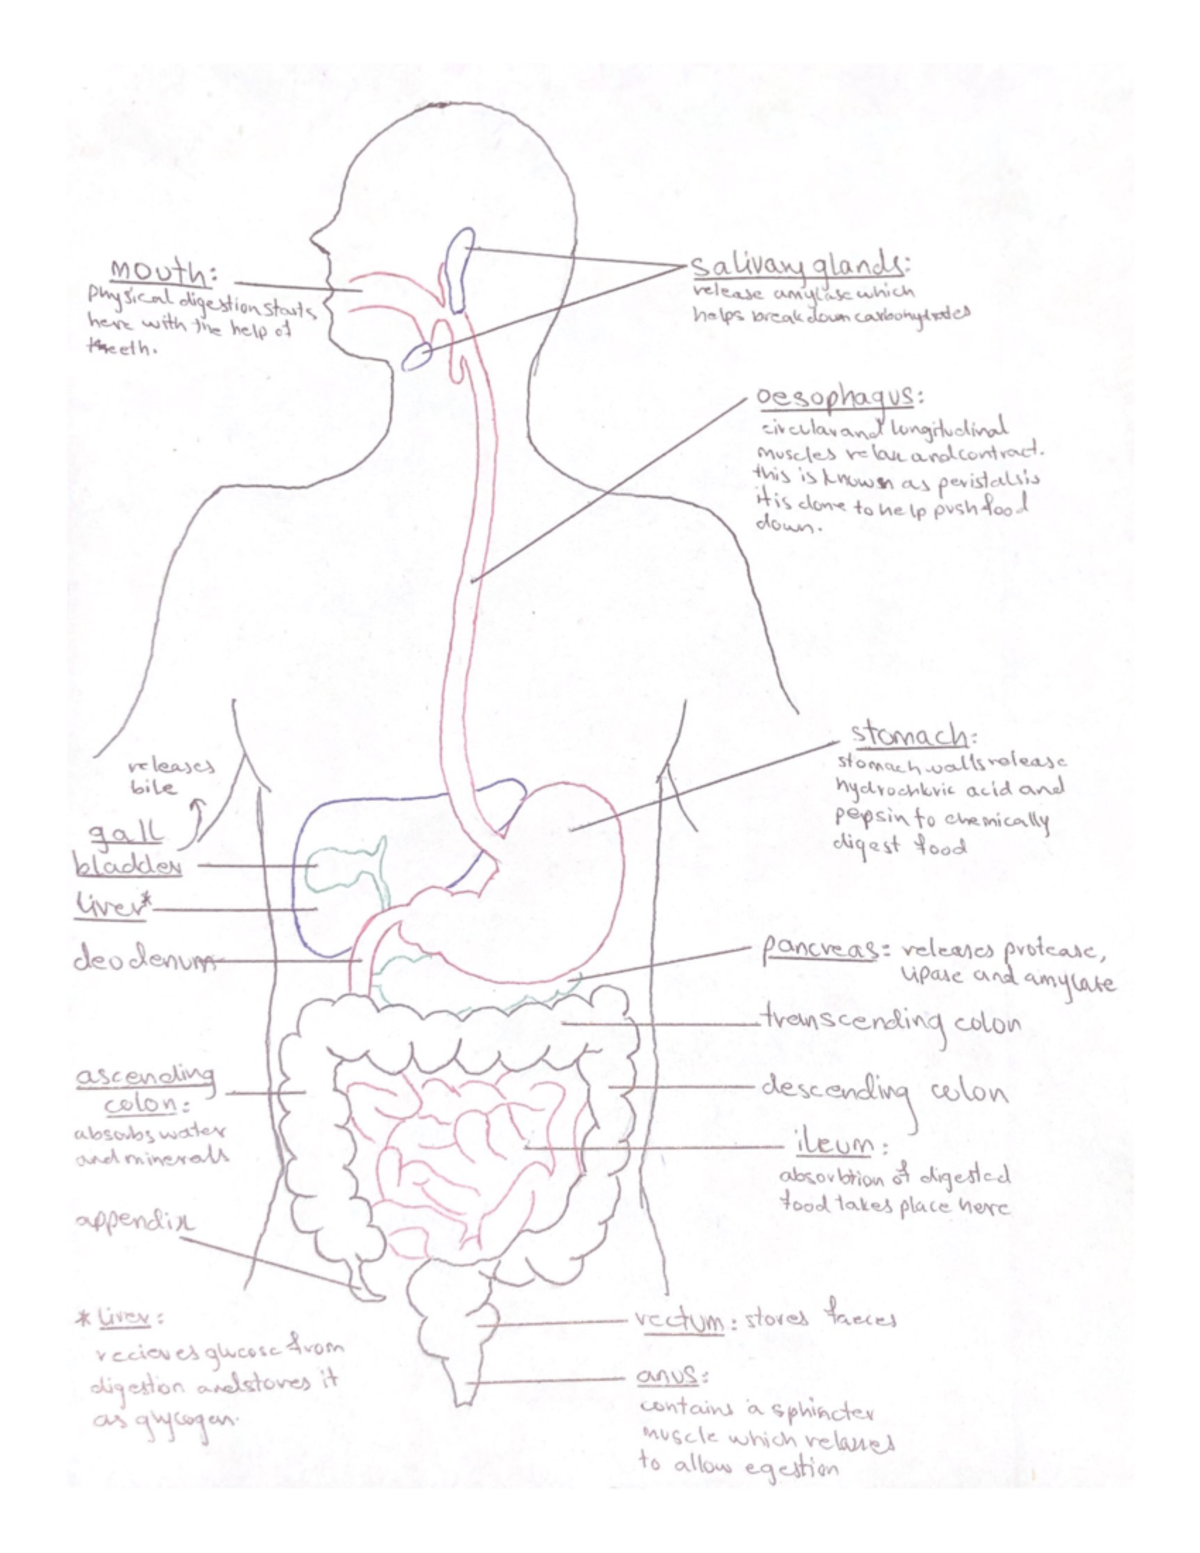 mouth:
physical digestion starts
here with the help of
teeth.
salivary glands:
release amylase which
helps break down carbohydrates
oesophagus:
circular and longitudinal
muscles relax and contract.
this is known as peristalsis
it is done to help push food
down.
stomach:
stomach walls release
hydrochloric acid and
pepsin to chemically
digest food
releases
bile
gall
bladder
liver*
deodenum
pancreas: releases protease,
lipase and amylase
transcending colon
ascending
colon:
absorbs water
and minerals
descending colon
ileum:
absorbtion of digested
food takes place here
appendix
* liver:
recieves glucose from
digestion and stores it
as glycogen.
rectum: stores faeces
anus:
contains a sphincter
muscle which relaxes
to allow egestion